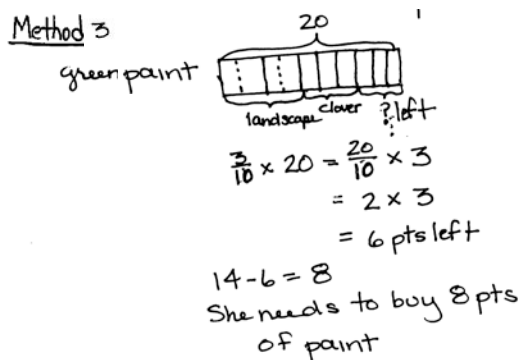 Method 3
20
green paint
landscape
clover
? left
3/10 × 20 = 20/10 × 3
= 2 × 3
= 6 pts left
14 - 6 = 8
She needs to buy 8 pts
of paint